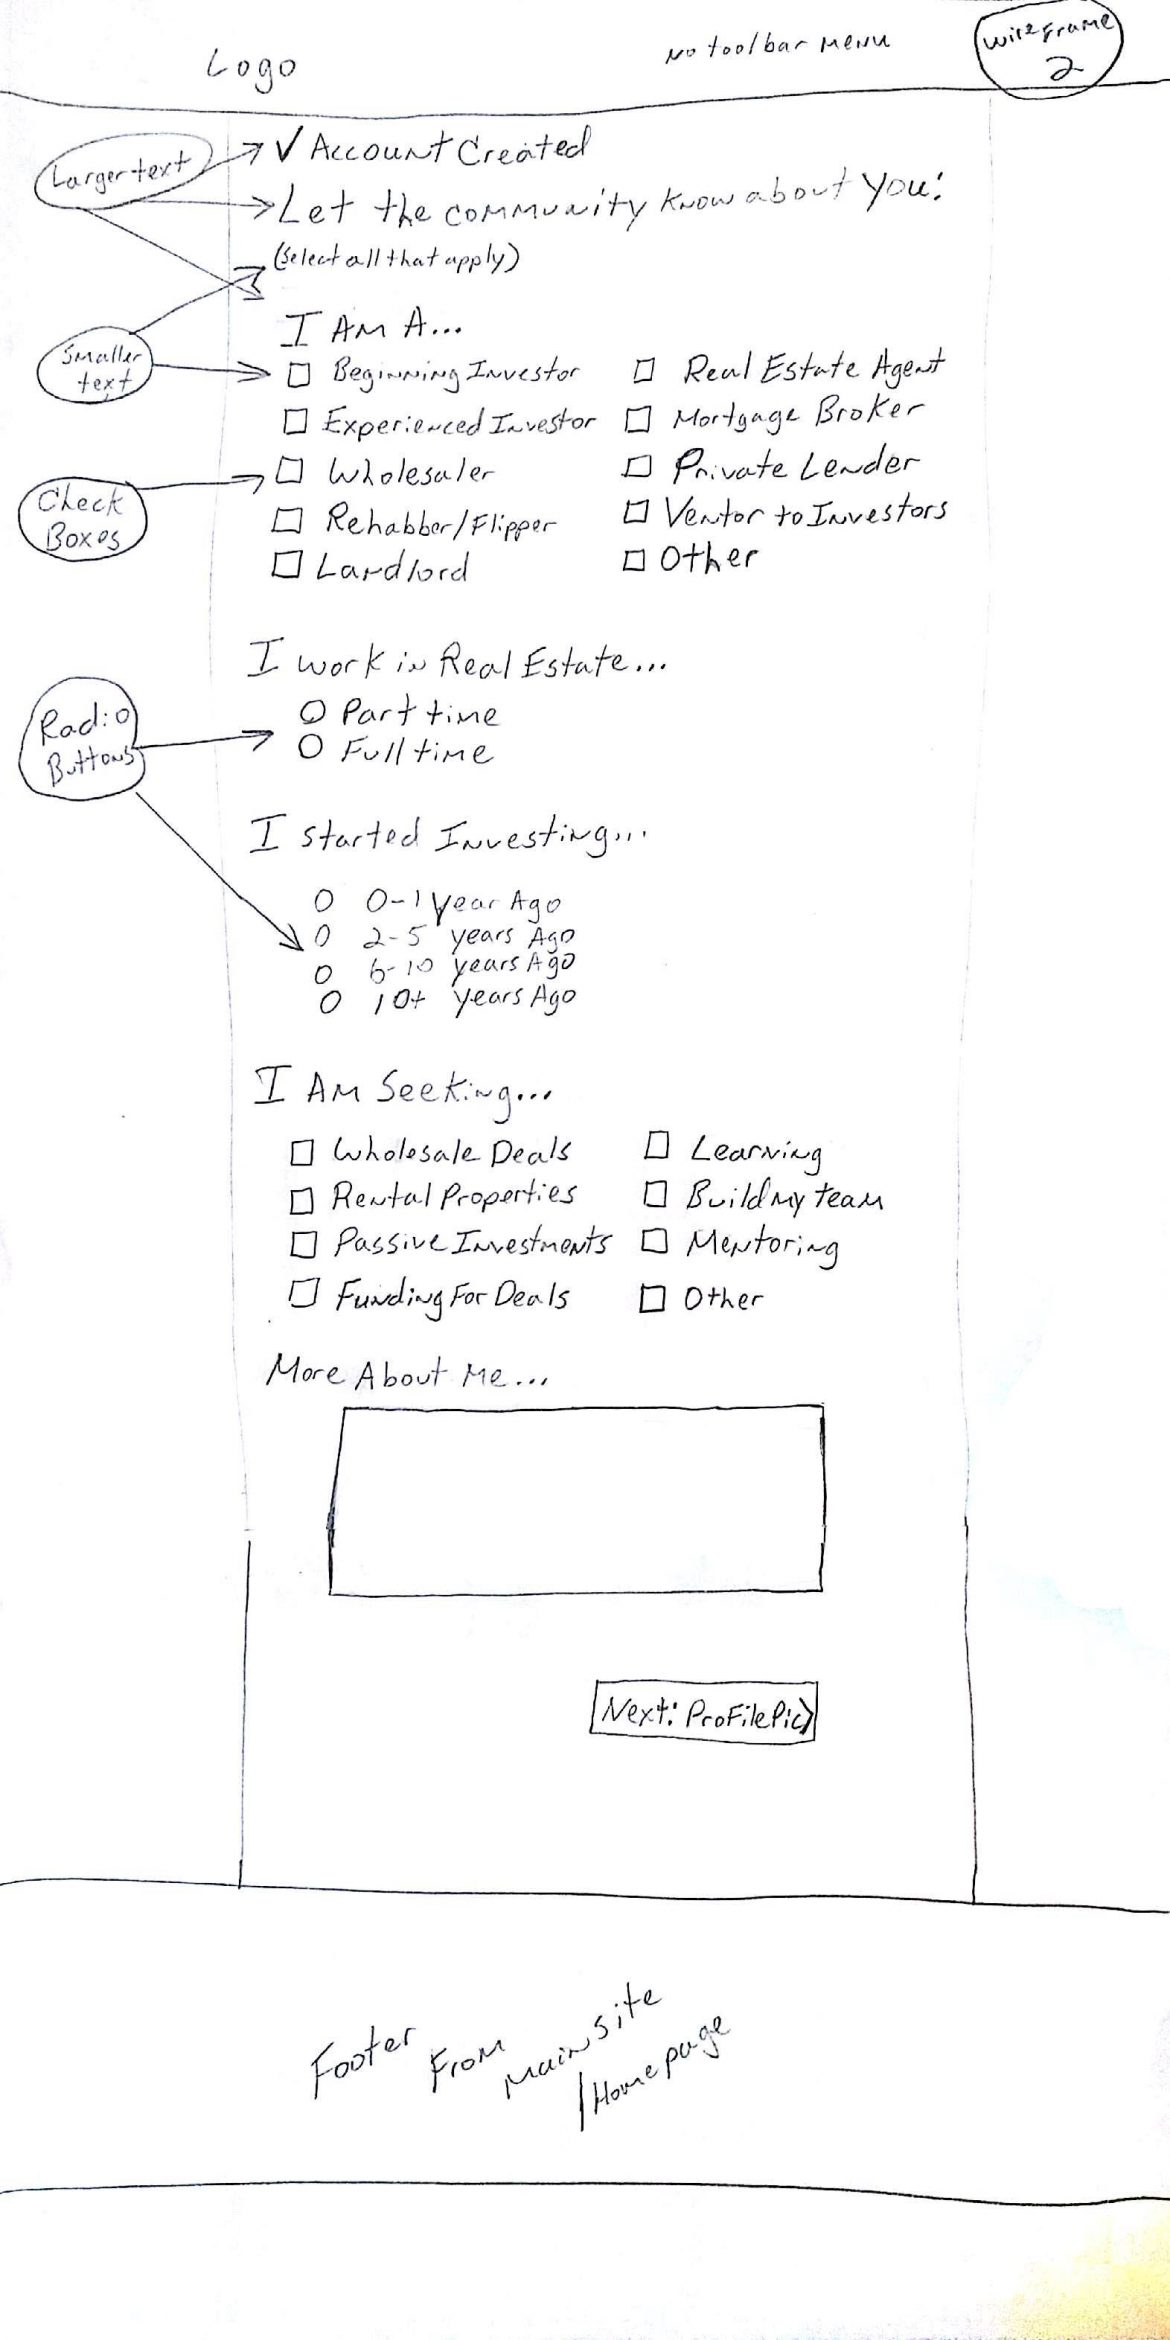 Logo
No toolbar menu
Wireframe
2
Larger text
✓ Account Created
Let the community know about you:
(select all that apply)
I Am A...
Smaller
text
☐ Beginning Investor ☐ Real Estate Agent
☐ Experienced Investor ☐ Mortgage Broker
Check
Boxes
☐ Wholesaler ☐ Private Lender
☐ Rehabber/Flipper ☐ Ventor to Investors
☐ Landlord ☐ Other
I work in Real Estate...
Radio
Buttons
○ Part time
○ Full time
I started Investing...
○ 0-1 year Ago
○ 2-5 years Ago
○ 6-10 years Ago
○ 10+ years Ago
I Am Seeking...
☐ Wholesale Deals ☐ Learning
☐ Rental Properties ☐ Build my team
☐ Passive Investments ☐ Mentoring
☐ Funding For Deals ☐ Other
More About Me...
Next: Profile Pic>
Footer From Main Site
/Homepage